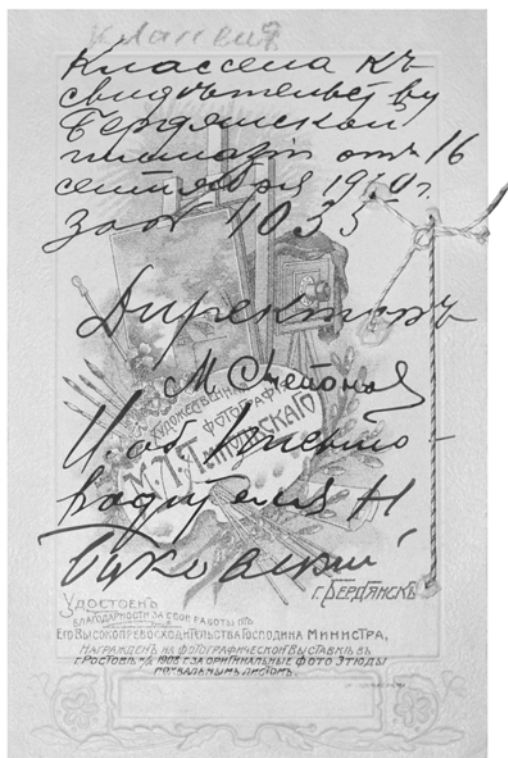 Классена къ
свидѣтельству
Бердянской
гимназіи отъ 16
сентября 1910 г.
за № 1035
Директоръ
М.
И. об. Письмо-
водителя Н
ХУДОЖЕСТВЕННАЯ
ФОТОГРАФІЯ
г. БЕРДЯНСКЪ
УДОСТОЕНЪ
БЛАГОДАРНОСТИ ЗА СВОИ РАБОТЫ ОТЪ
ЕГО ВЫСОКОПРЕВОСХОДИТЕЛЬСТВА ГОСПОДИНА МИНИСТРА,
НАГРАЖДЕНЪ НА ФОТОГРАФИЧЕСКОЙ ВЫСТАВКѢ ВЪ
Г. РОСТОВѢ н/Д 1908 Г. ЗА ОРИГИНАЛЬНЫЕ ФОТО ЭТЮДЫ
ПОХВАЛЬНЫМЪ ЛИСТОМЪ.